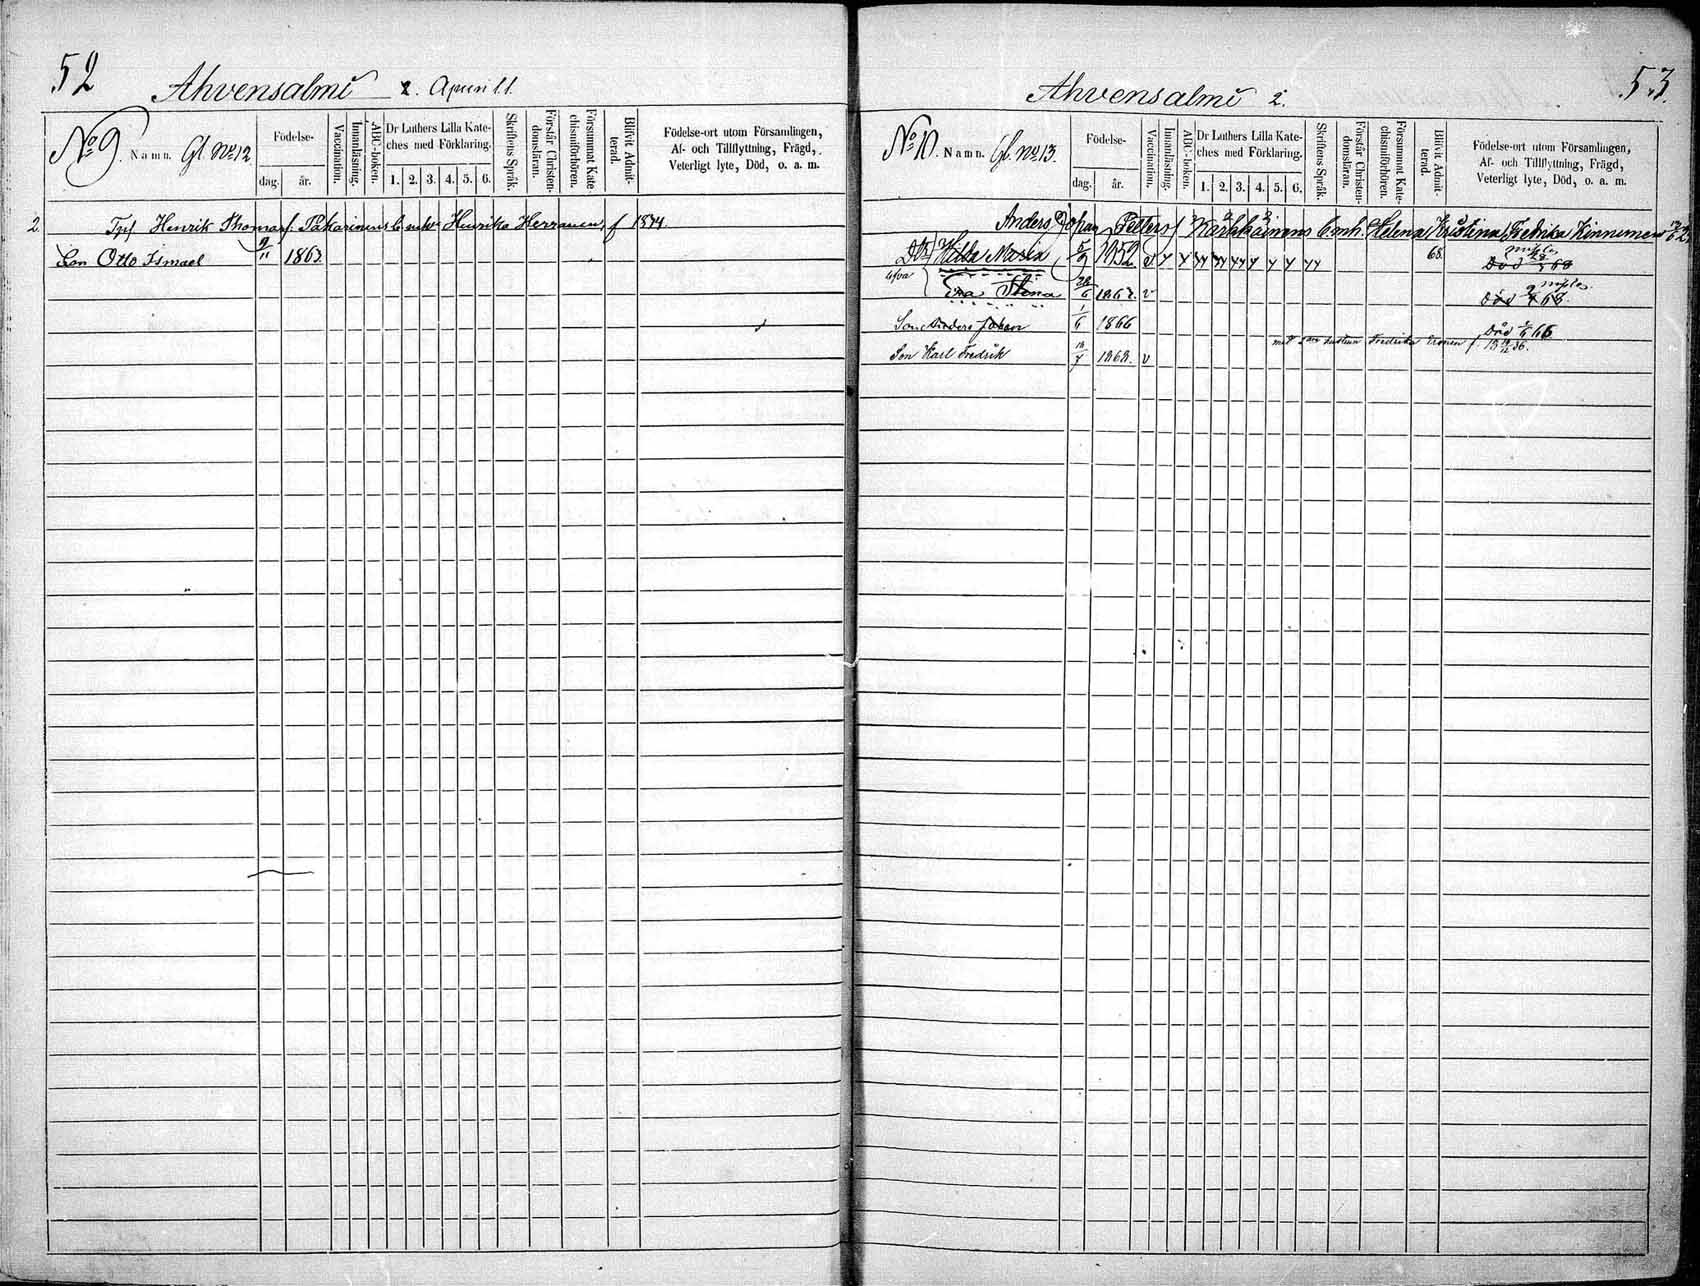 52
Ahvensalmi 2.
No 9. Namn. Gl. No 12
Födelse-
dag. år.
Vaccination.
Innanläsning.
ABC-boken.
Dr Luthers Lilla Kate-
ches med Förklaring.
1. 2. 3. 4. 5. 6.
Skriftens Språk.
Förstår Christen-
domsläran.
Försummat Kate
chismiförhören.
Blifvit Admit-
terad.
Födelse-ort utom Församlingen,
Af- och Tillflyttning, Frägd,
Veterligt lyte, Död, o. a. m.
2. Henrik Thomas f. Pakarinens enka Henrika Herranen f
Son Otto Ismael 1863
53.
Ahvensalmi 2.
No 10. Namn. Gl. No 13.
Födelse-
dag. år.
Vaccination.
Innanläsning.
ABC-boken.
Dr Luthers Lilla Kate-
ches med Förklaring.
1. 2. 3. 4. 5. 6.
Skriftens Språk.
Förstår Christen-
domsläran.
Försummat Kate-
chismiförhören.
Blifvit Admit-
terad.
Födelse-ort utom Församlingen,
Af- och Tillflyttning, Frägd,
Veterligt lyte, Död, o. a. m.
Anders Johan Petters f Karhkainens Helena Kristina Fredrika Kinnunen
Maria 1852 68. Död 68
Stina v Död 68.
Son Anders Johan 1/6 1866 Död 66
Fredrika
Son Karl Fredrik 1868. v